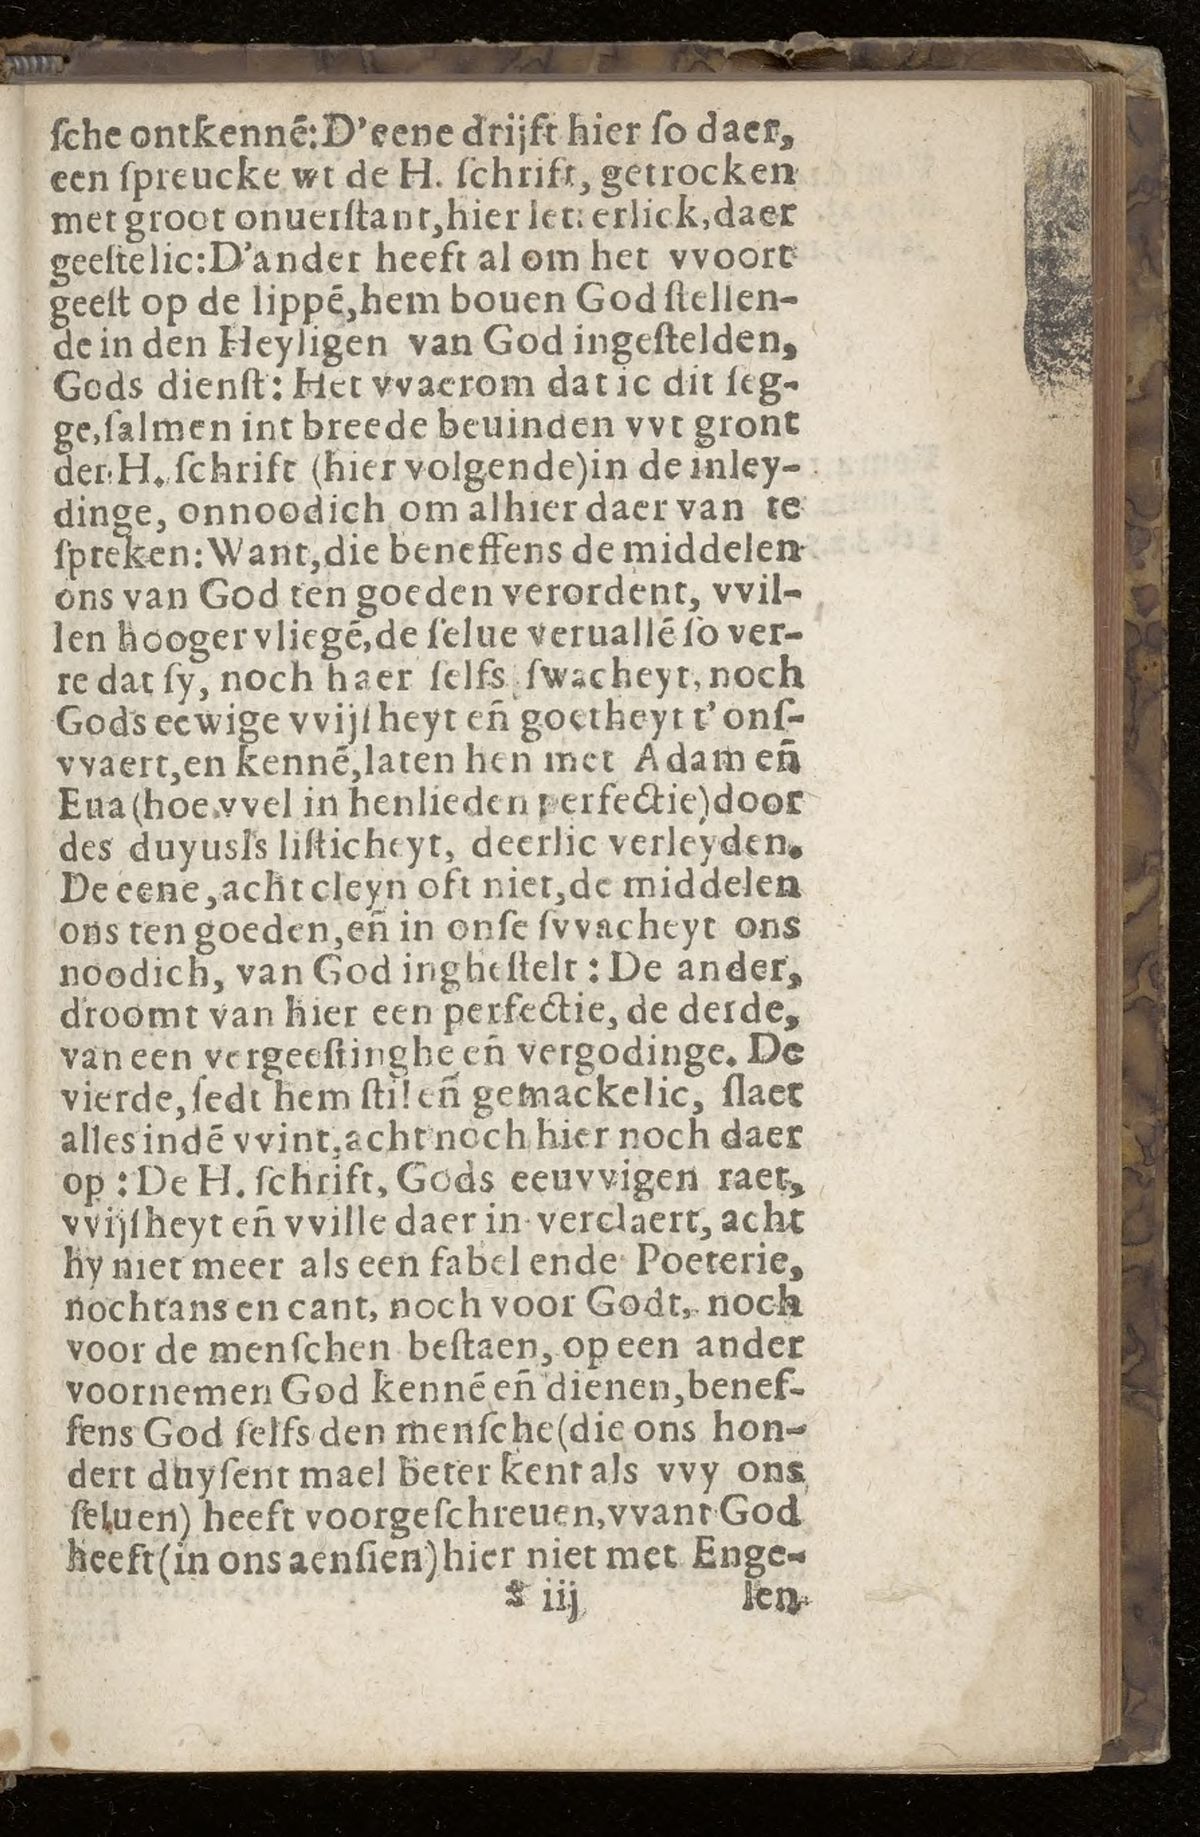 ſche ontkennẽ: D'eene drijft hier ſo daer,
een ſpreucke wt de H. ſchrift, getrocken
met groot onuerſtant, hier letterlick, daer
geeſtelic: D'ander heeft al om het vvoort
geeſt op de lippẽ, hem bouen God ſtellen-
de in den Heyligen van God ingeſtelden,
Gods dienſt: Het vvaerom dat ic dit ſeg-
ge, ſalmen int breede beuinden vvt gront
der H. ſchrift (hier volgende) in de inley-
dinge, onnoodich om alhier daer van te
ſpreken: Want, die beneffens de middelen
ons van God ten goeden verordent, vvil-
len hooger vliegẽ, de ſelue veruallẽ ſo ver-
re dat ſy, noch haer ſelfs ſwacheyt, noch
Gods eewige vvijſheyt en̄ goetheyt t'onſ-
vvaert, en kennẽ, laten hen met Adam en̄
Eua (hoe vvel in henlieden perfectie) door
des duyuſls liſticheyt, deerlic verleyden.
De eene, acht cleyn oft niet, de middelen
ons ten goeden, en̄ in onſe ſvvacheyt ons
noodich, van God ingheſtelt: De ander,
droomt van hier een perfectie, de derde,
van een vergeeſtinghe en̄ vergodinge. De
vierde, ſedt hem ſtil en̄ gemackelic, ſlaet
alles indẽ vvint, acht noch hier noch daer
op: De H. ſchrift, Gods eeuvvigen raet,
vvijſheyt en̄ vville daer in verclaert, acht
hy niet meer als een fabel ende Poeterie,
nochtans en cant, noch voor Godt, noch
voor de menſchen beſtaen, op een ander
voornemen God kennẽ en̄ dienen, benef-
fens God ſelfs den menſche (die ons hon-
dert duyſent mael beter kent als vvy ons
ſeluen) heeft voorgeſchreuen, vvant God
heeft (in ons aenſien) hier niet met Enge-
iij len